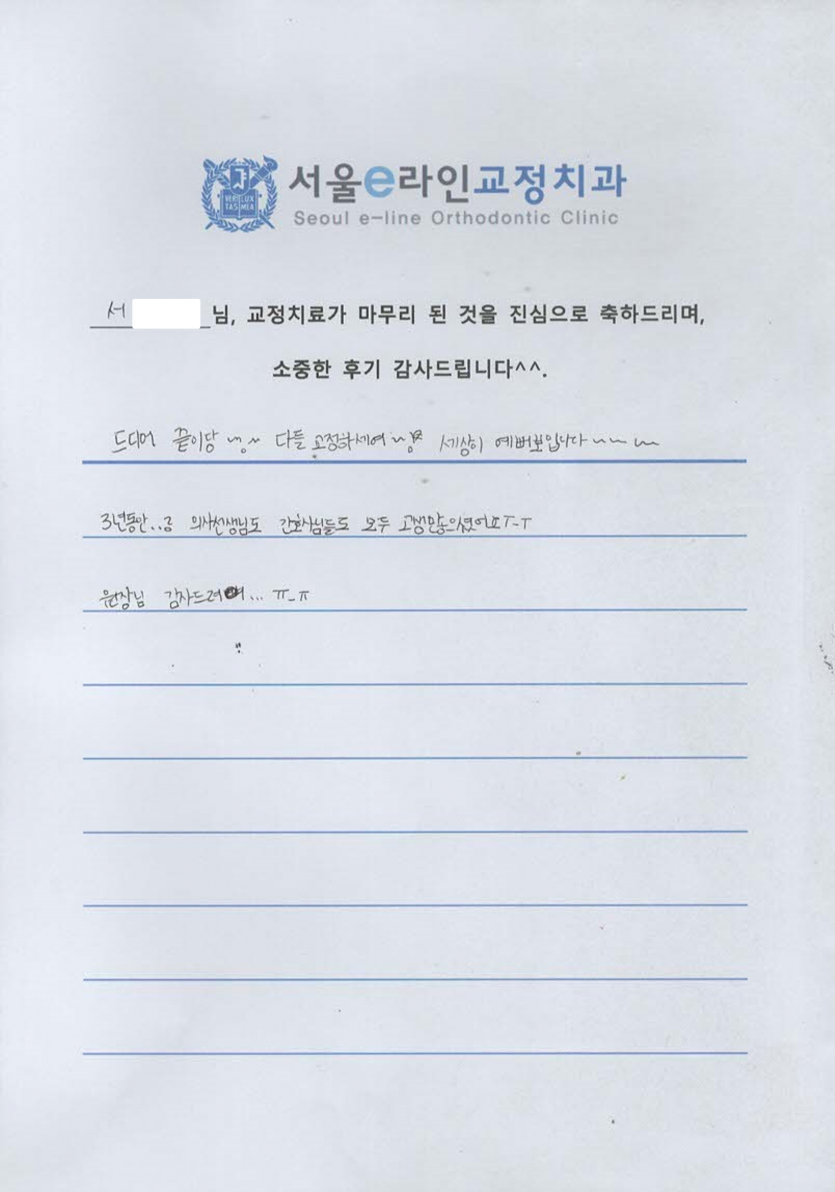 VERI LUX
TAS MEA
서울e라인교정치과
Seoul e-line Orthodontic Clinic
서 님, 교정치료가 마무리 된 것을 진심으로 축하드리며,
소중한 후기 감사드립니다^^.
드디어 끝이당 ~ 다들 교정하세여 ~ 세상이 예뻐보입니다 ~~~
3년동안.. 의사선생님도 간호사님들도 모두 고생많으셨어요 ㅜ-ㅜ
원장님 감사드려여... ㅠ-ㅠ